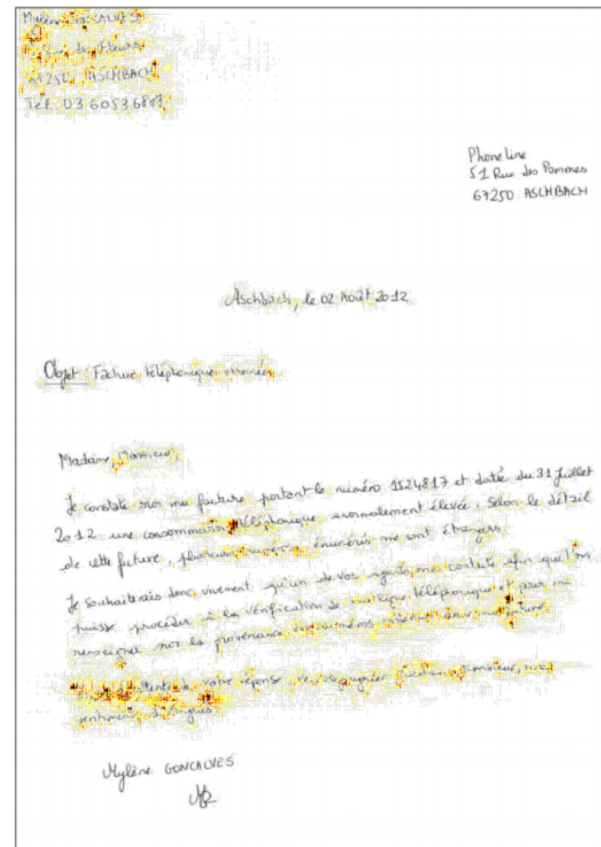 Mylène GONCALVES
Rue des fleurs
67250 ASCHBACH
Tél. 03 60536
Phone Line
51 Rue des Pommes
67250 ASCHBACH
Aschbach, le 02 Août 2012
Objet : Facture téléphonique erronée
Madame, Monsieur,
Je constate sur ma facture portant le numéro 1524817 et datée du 31 Juillet
2012 une consommation téléphonique anormalement élevée. Selon le détail
de cette facture, plusieurs numéros énumérés me sont étrangers.
Je souhaiterais donc vivement qu'un de vos agents me contacte afin que l'on
puisse procéder à la vérification de ma ligne téléphonique et pour me
renseigner sur la provenance des numéros
votre réponse, Madame, Monsieur, mes
sentiments
Mylène GONCALVES